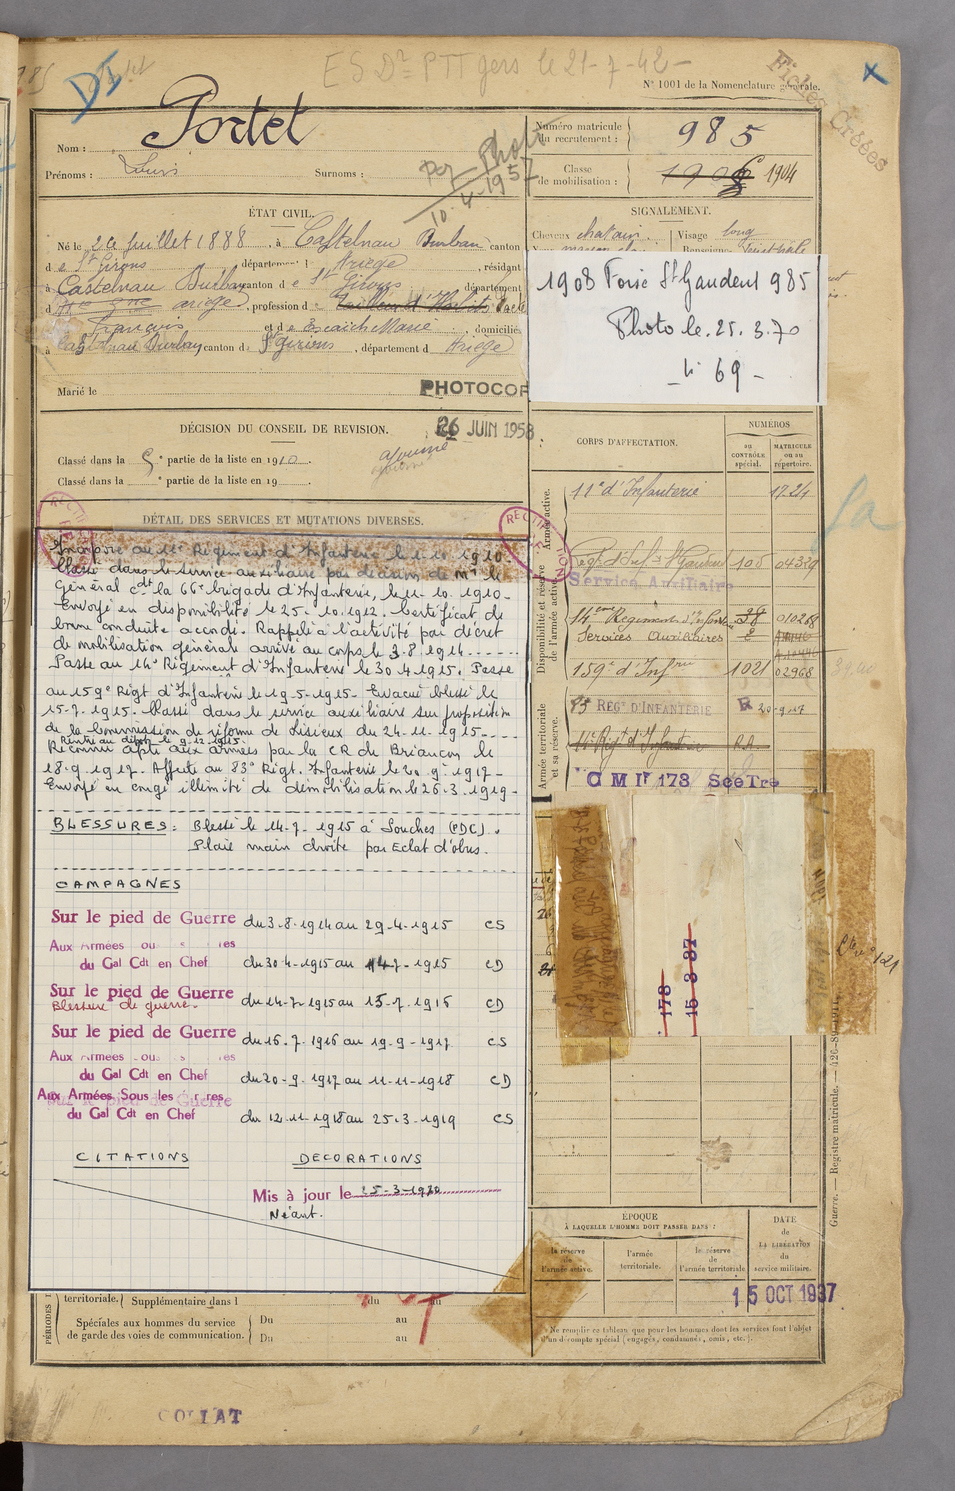 ES Dr PTT gers le 21-7-42-
DI
N° 1001 de la Nomenclature générale.
Fiches Créées
Nom : Portet
Prénoms : Louis
Surnoms :
Photo
10.4.1957
Numéro matricule du recrutement : 985
Classe de mobilisation : 1904
ÉTAT CIVIL.
Né le 20 Juillet 1888, à Castelnau Durban canton
de St Girons, département Ariège, résidant
à Castelnau Durban canton de St Girons département
d ariège, profession de Tailleur d'Habits
François et de Escaich Marie, domiciliés
à Castelnau Durban canton de St Girons, département d Ariège
Marié le
PHOTOCOP
26 JUIN 1958
SIGNALEMENT.
Cheveux chatain. Visage long
1908 Foise St Gaudens 985
Photo le. 25. 3. 70
69 -
DÉCISION DU CONSEIL DE REVISION.
Classé dans la 5e partie de la liste en 1910. ajourné
Classé dans la e partie de la liste en 19
DÉTAIL DES SERVICES ET MUTATIONS DIVERSES.
Incorporé au 11e Régiment d'Infanterie le 1-10-1910.
Classé dans le service auxiliaire par décision de Mr le
Général Cdt la 66e brigade d'Infanterie, le 11-10-1910-
Envoyé en disponibilité le 25-10.1912. Certificat de
bonne conduite accordé. Rappelé à l'activité par décret
de mobilisation générale arrivé au corps le 3.8.1914......
Passé au 14e Régiment d'Infanterie le 30.4.1915. Passé
au 159e Régt d'Infanterie le 19-5-1915- Evacué blessé le
15-7-1915. Classé dans le service auxiliaire sur proposition
de la Commission de réforme de Lisieux du 24-11-1915-....
Rentré au dépôt le 9.12.1915.
Reconnu apte aux armées par la CR de Briançon le
18-9-1917. Affecté au 83e Régt. Infanterie le 20.9.1917-
Envoyé en congé illimité de démobilisation le 26.3.1919-
BLESSURES : Blessé le 14-7-1915 à Souchez (PDC).
Plaie main droite par Eclat d'obus.
CAMPAGNES
Sur le pied de Guerre du 3-8-1914 au 29-4-1915 CS
Aux Armées ou s es
du Gal Cdt en Chef du 30-4-1915 au 14-7-1915 CD
Sur le pied de Guerre
Blessure de guerre. du 14-7-1915 au 15-7-1916 CD
Sur le pied de Guerre du 16.7.1916 au 19-9-1917 CS
Aux Armées ous s es
du Gal Cdt en Chef du 20-9.1917 au 11-11-1918 CD
Aux Armées Sous les res
Sur le pied de Guerre
du Gal Cdt en Chef du 12-11-1918 au 25.3.1919 CS
CITATIONS DECORATIONS
Mis à jour le 25-3-1970
Néant.
CORPS D'AFFECTATION.
NUMÉROS
au CONTRÔLE spécial.
MATRICULE ou au répertoire.
Armée active.
11e d'Infanterie 1724
Disponibilité et réserve de l'armée active.
Regt d'Inf St Gaudens 100 04329
Service Auxiliaire
14eme Régiment d'Infanterie 38 010268
Services Auxiliaires 2
159e d'Infrie 1021 02968
Armée territoriale et sa réserve.
83 REGt D'INFANTERIE R 20-9-17
14e Rigt d'Infanterie R.A.
C M Ir 173 SceTre
173
15 3 37
ÉPOQUE
À LAQUELLE L'HOMME DOIT PASSER DANS :
la réserve de l'armée active.
l'armée territoriale.
la réserve de l'armée territoriale
DATE de LA LIBÉRATION du service militaire.
15 OCT 1937
Ne remplir ce tableau que pour les hommes dont les services font l'objet
d'un décompte spécial (engagés, condamnés, omis, etc.).
territoriale. Supplémentaire dans l du au
Spéciales aux hommes du service de garde des voies de communication. Du au
Du au
Guerre. — Registre matricule.